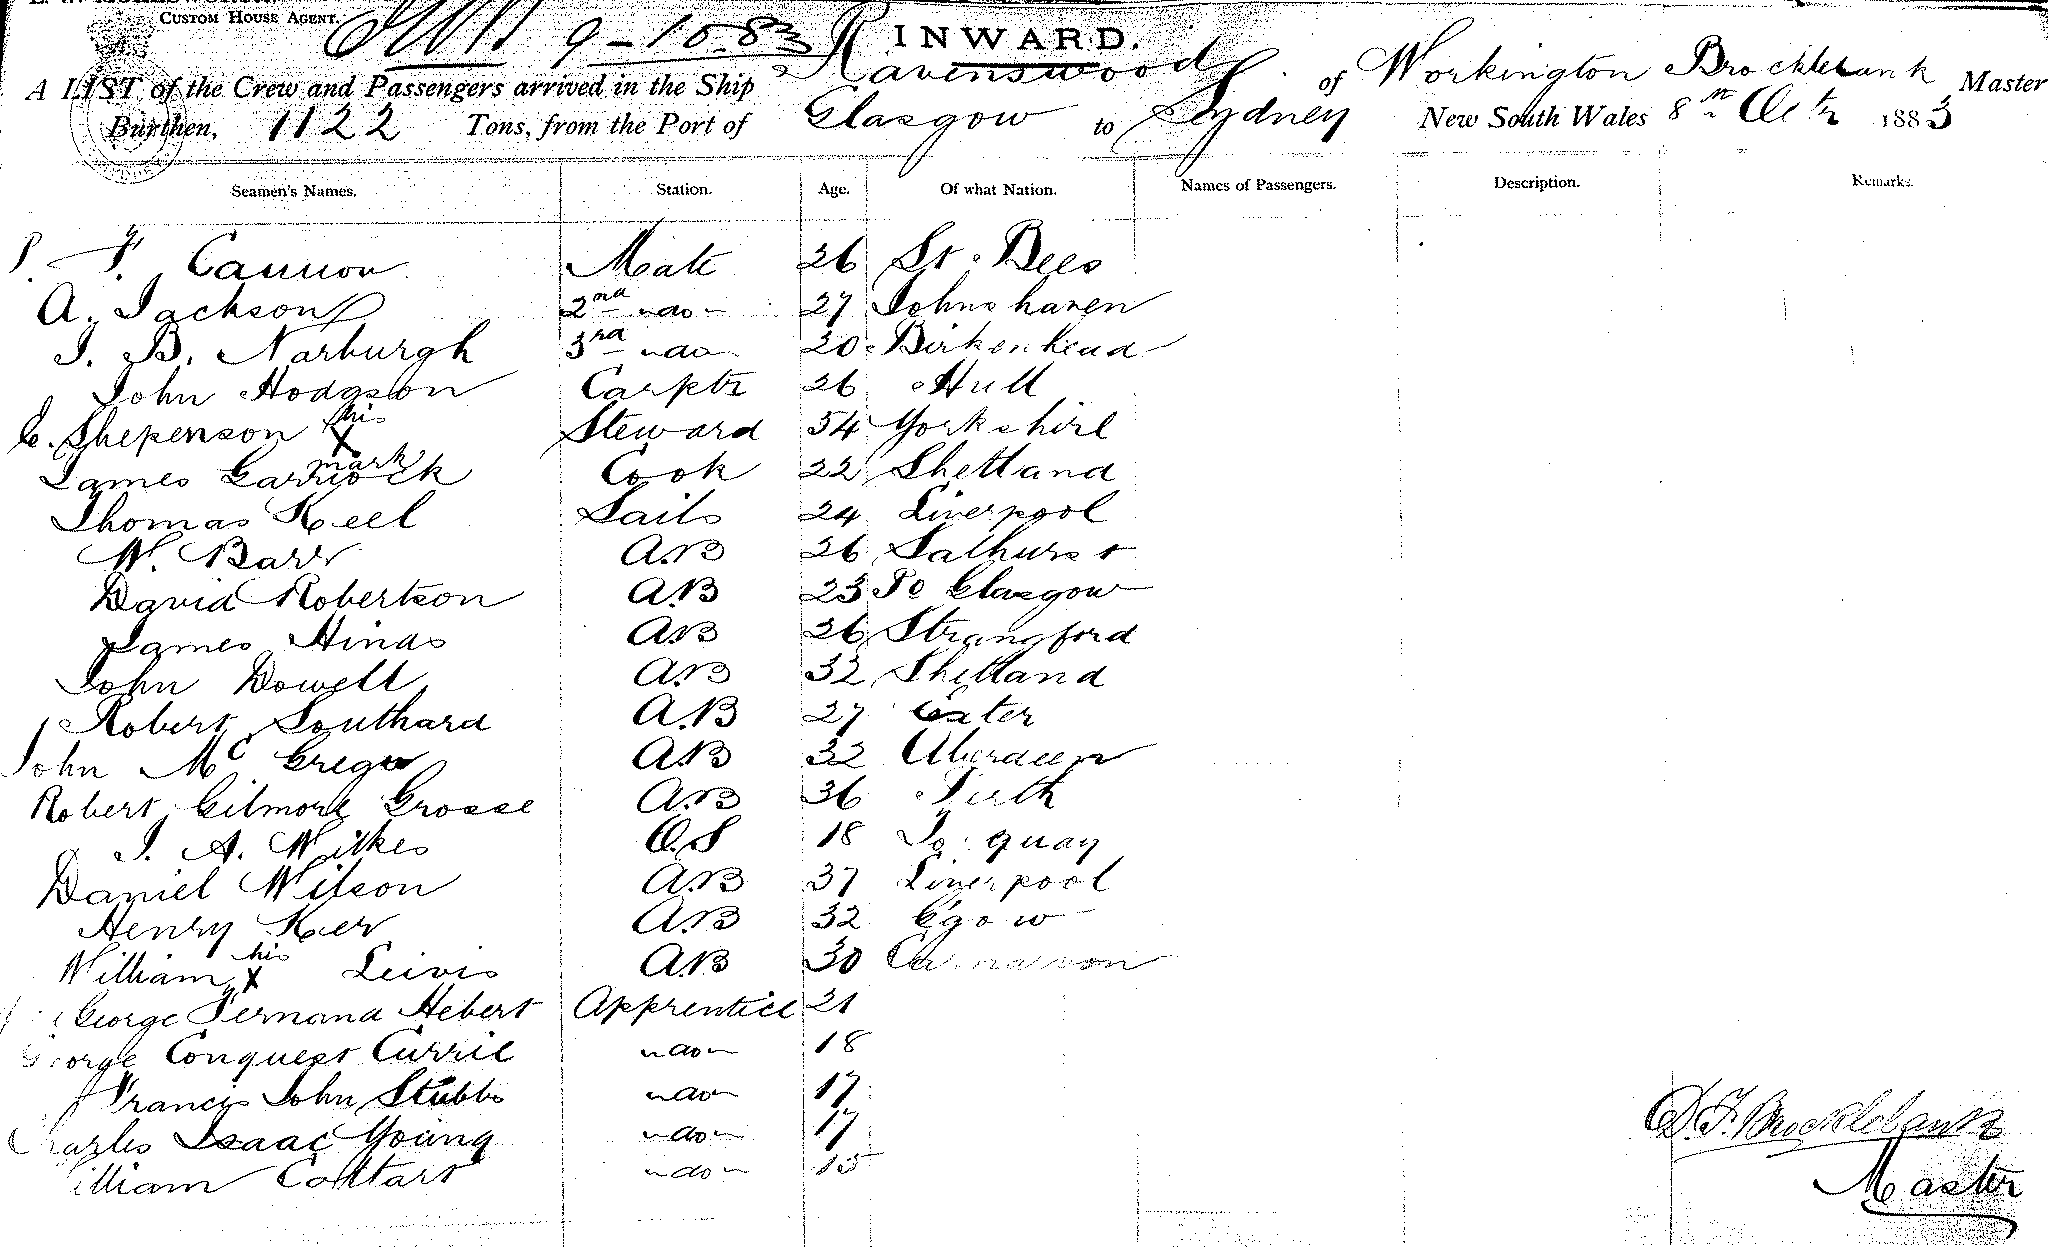 CUSTOM HOUSE AGENT.
9-10-83
INWARD.
A LIST of the Crew and Passengers arrived in the Ship Ravenswood of Workington Brocklebank Master
Burthen, 1122 Tons, from the Port of Glasgow to Sydney New South Wales 8th Octr 1883
Seamen's Names. Station. Age. Of what Nation. Names of Passengers. Description. Remarks.
P. F. Cannon Mate 26 St. Bees
A. Jackson 2nd do 27 Johnshaven
J. B. Narburgh 3rd do 20 Birkenhead
John Hodgson Carptr 26 Hull
his
C. Shepenson X Steward 54 Yorkshire
mark
James Garriock Cook 22 Shetland
Thomas Keel Sails 24 Liverpool
W. Barr AB 26
David Robertson AB 23 Pt Glasgow
James Hinds AB 26 Strangford
John Dowell AB 32 Shetland
Robert Southard AB 27 Exter
John McGregor AB 32 Aberdeen
Robert Gilmore Grosse AB 36 Perth
J. A. Wilkes O.S 18 To quay
Daniel Wilson AB 37 Liverpool
Henry Ker AB 32 G'gow
his
William X Leivis AB 30 Carnarvon
George Fernand Hebert Apprentice 21
George Conquest Currie do 18
Francis John Stubbs do 17
Charles Isaac Young do 17
William Cottart do 15
D. F. Brocklebank
Master